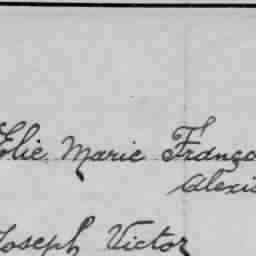 Folie Marie Franço
Alexis
Joseph Victor